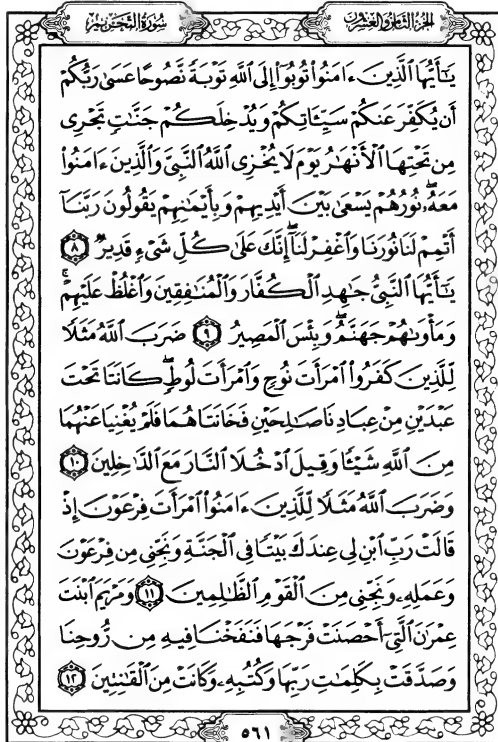 سُورَةُ التَّحْرِيمِ الجُزْءُ الثَّامِنُ وَالعِشْرُونَ
يَـٰٓأَيُّهَا ٱلَّذِينَ ءَامَنُوا۟ تُوبُوٓا۟ إِلَى ٱللَّهِ تَوْبَةً نَّصُوحًا عَسَىٰ رَبُّكُمْ
أَن يُكَفِّرَ عَنكُمْ سَيِّـَٔاتِكُمْ وَيُدْخِلَكُمْ جَنَّـٰتٍ تَجْرِى
مِن تَحْتِهَا ٱلْأَنْهَـٰرُ يَوْمَ لَا يُخْزِى ٱللَّهُ ٱلنَّبِىَّ وَٱلَّذِينَ ءَامَنُوا۟
مَعَهُۥ ۖ نُورُهُمْ يَسْعَىٰ بَيْنَ أَيْدِيهِمْ وَبِأَيْمَـٰنِهِمْ يَقُولُونَ رَبَّنَآ
أَتْمِمْ لَنَا نُورَنَا وَٱغْفِرْ لَنَآ ۖ إِنَّكَ عَلَىٰ كُلِّ شَىْءٍ قَدِيرٌ ٨
يَـٰٓأَيُّهَا ٱلنَّبِىُّ جَـٰهِدِ ٱلْكُفَّارَ وَٱلْمُنَـٰفِقِينَ وَٱغْلُظْ عَلَيْهِمْ ۚ
وَمَأْوَىٰهُمْ جَهَنَّمُ ۖ وَبِئْسَ ٱلْمَصِيرُ ٩ ضَرَبَ ٱللَّهُ مَثَلًا
لِّلَّذِينَ كَفَرُوا۟ ٱمْرَأَتَ نُوحٍ وَٱمْرَأَتَ لُوطٍ ۖ كَانَتَا تَحْتَ
عَبْدَيْنِ مِنْ عِبَادِنَا صَـٰلِحَيْنِ فَخَانَتَاهُمَا فَلَمْ يُغْنِيَا عَنْهُمَا
مِنَ ٱللَّهِ شَيْـًٔا وَقِيلَ ٱدْخُلَا ٱلنَّارَ مَعَ ٱلدَّٰخِلِينَ ١٠
وَضَرَبَ ٱللَّهُ مَثَلًا لِّلَّذِينَ ءَامَنُوا۟ ٱمْرَأَتَ فِرْعَوْنَ إِذْ
قَالَتْ رَبِّ ٱبْنِ لِى عِندَكَ بَيْتًا فِى ٱلْجَنَّةِ وَنَجِّنِى مِن فِرْعَوْنَ
وَعَمَلِهِۦ وَنَجِّنِى مِنَ ٱلْقَوْمِ ٱلظَّـٰلِمِينَ ١١ وَمَرْيَمَ ٱبْنَتَ
عِمْرَٰنَ ٱلَّتِىٓ أَحْصَنَتْ فَرْجَهَا فَنَفَخْنَا فِيهِ مِن رُّوحِنَا
وَصَدَّقَتْ بِكَلِمَـٰتِ رَبِّهَا وَكُتُبِهِۦ وَكَانَتْ مِنَ ٱلْقَـٰنِتِينَ ١٢
٥٦١